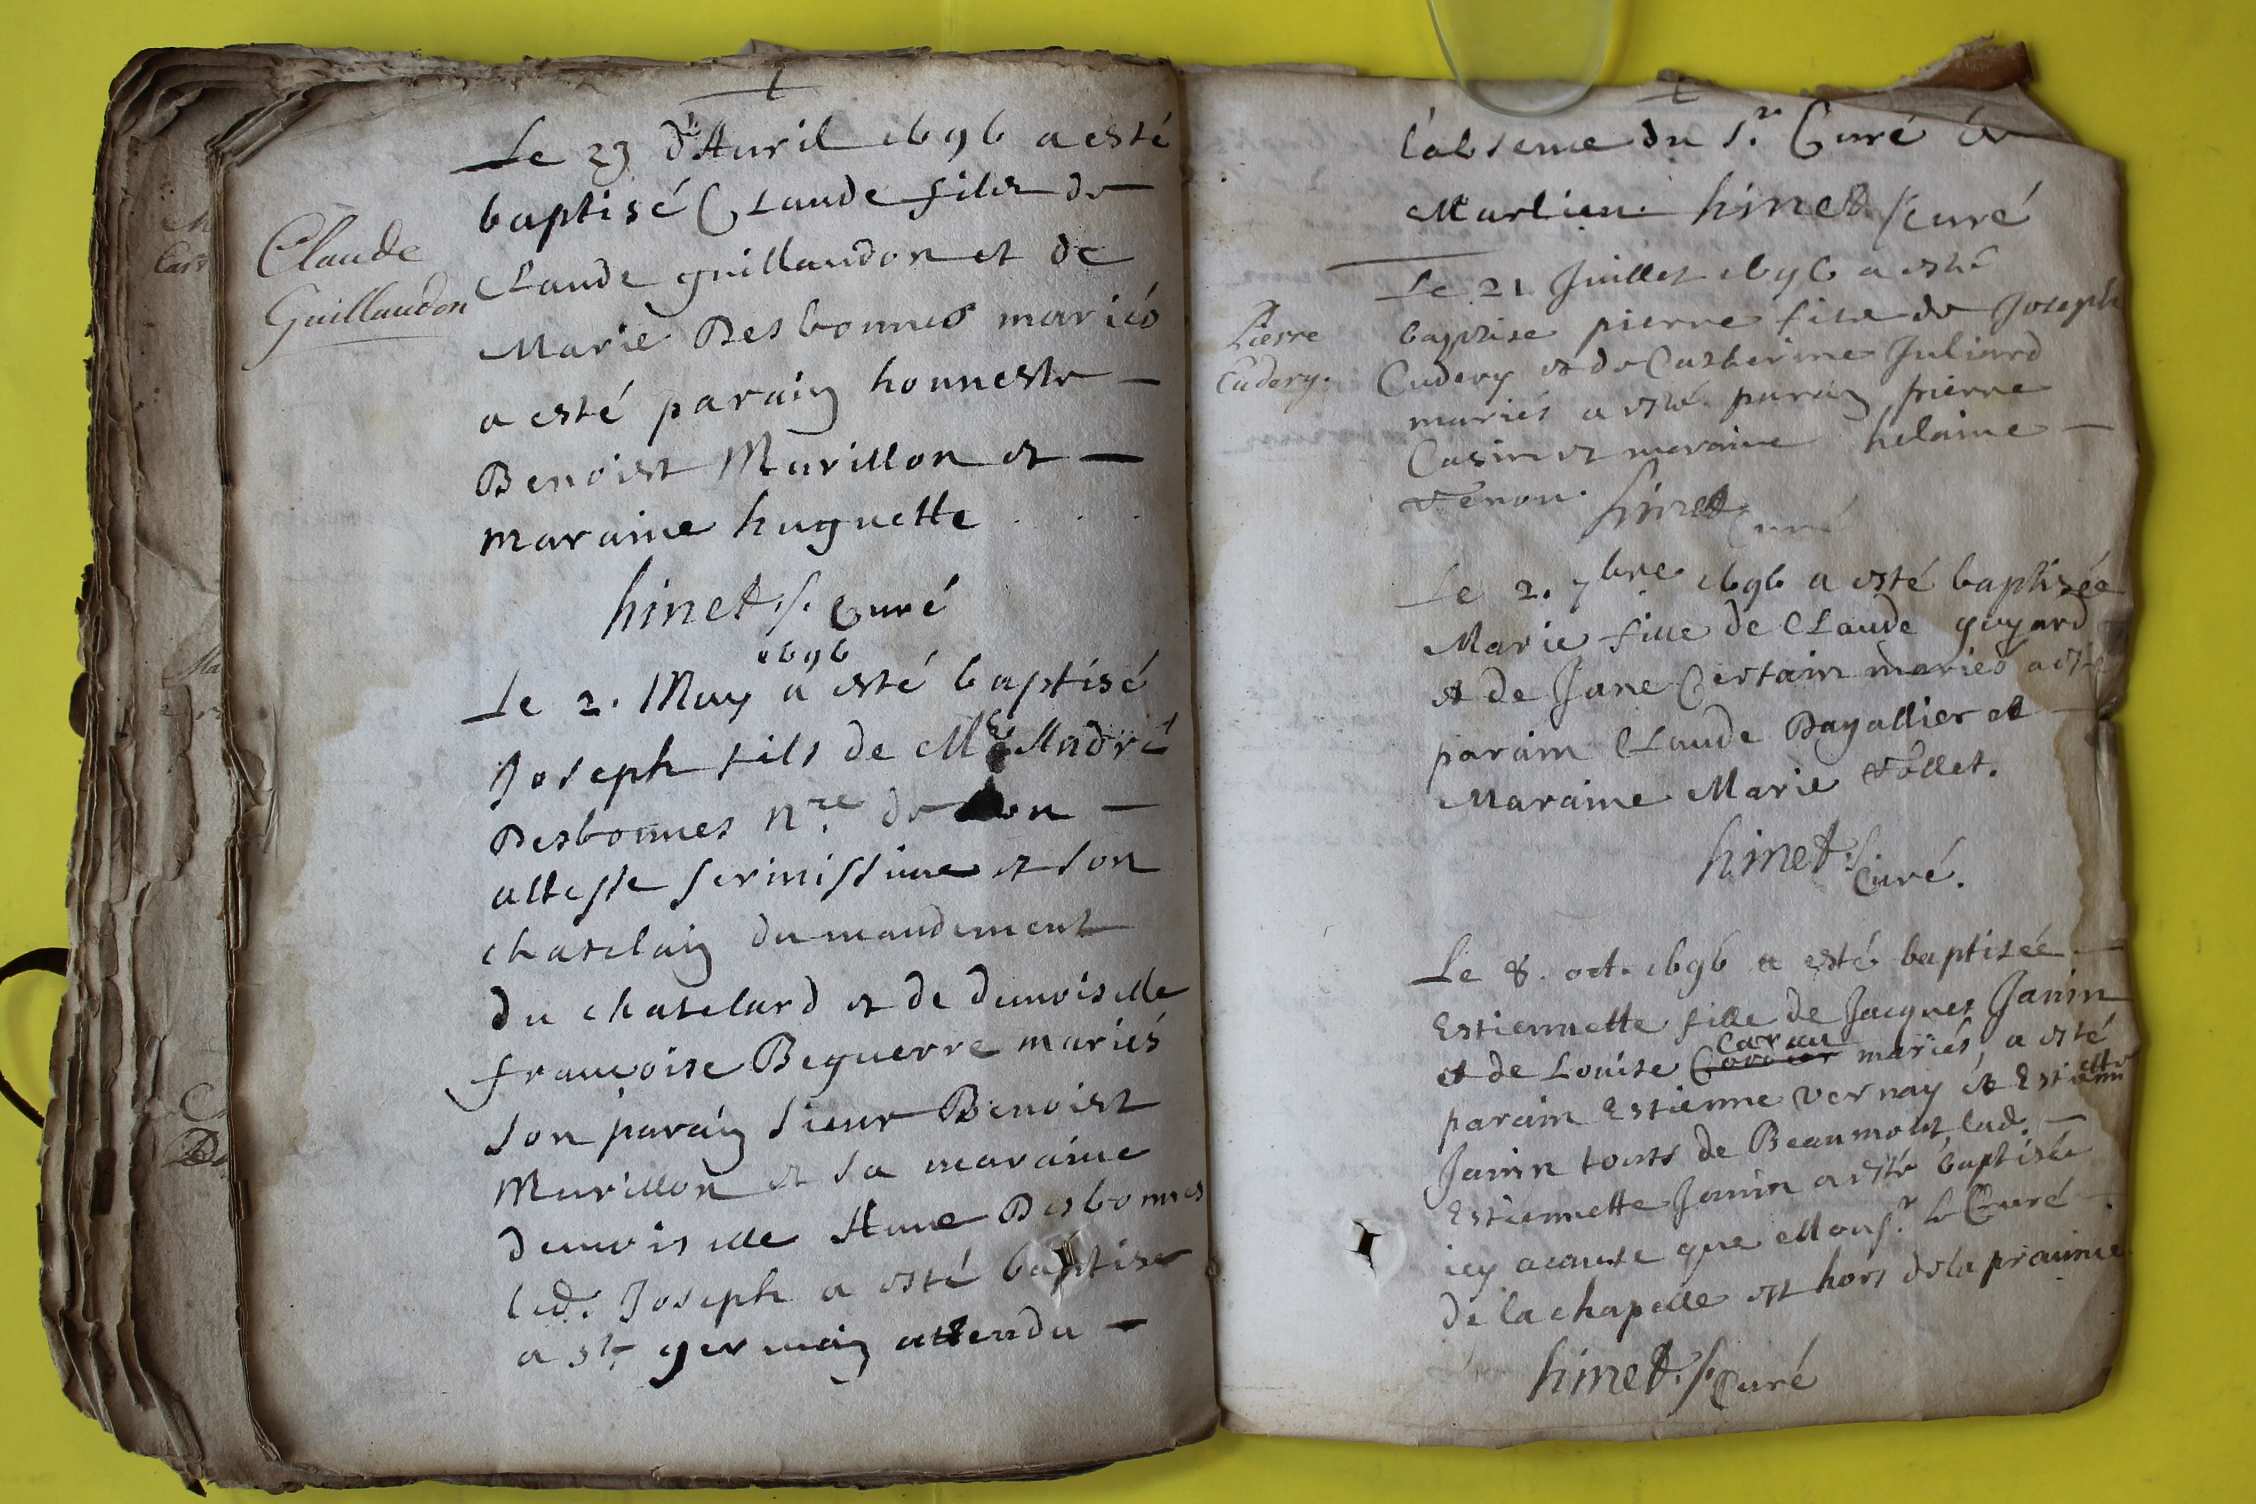 Le 23 d'Auril 1696 a esté
baptisé Claude filz de
Claude guillaudon et de
Marie Desbonnes mariés
a esté parain honneste
Benoist Murillon et
maraine huguette
hinet s. Curé
Claude
Guillaudon
1696
Le 2. May a esté baptisé
Joseph fils de Me André
Desbonnes nre de son
altesse serinissime et son
chatelain du mandement
du chatelard et de dmoiselle
francoise Beguerre mariés
son parain sieur Benoist
Murillon et sa maraine
dmoiselle Anne Desbonnes
led. Joseph a esté baptise
a st germain attendu
l'absence du sr. Curé de
Marlieu. hinet s. curé
Pierre
Cudery.
Le 21 Juillet 1696 a esté
baptise pierre filz de Joseph
Cudery et de Catherine Juliard
mariés a esté parain pierre
Casin et maraine helaine
venon. hinet
curé
Le 2. 7bre 1696 a esté baptisée
Marie fille de Claude guyard
et de Jane Certain mariés a esté
parain Claude Dagallier et
Maraine Marie vollet.
hinet s. Curé.
Le 8. oct. 1696 a esté baptisée
Estiennette fille de Jacques Janin
et de Louise mariés, a esté
parain Estienne vernay et Estiennette
Janin touts de Beaumont lad.
Estiennette Janin a esté baptisée
icy acause que Monsr le Curé
de la chapelle est hors de la prouince
hinet s. Curé